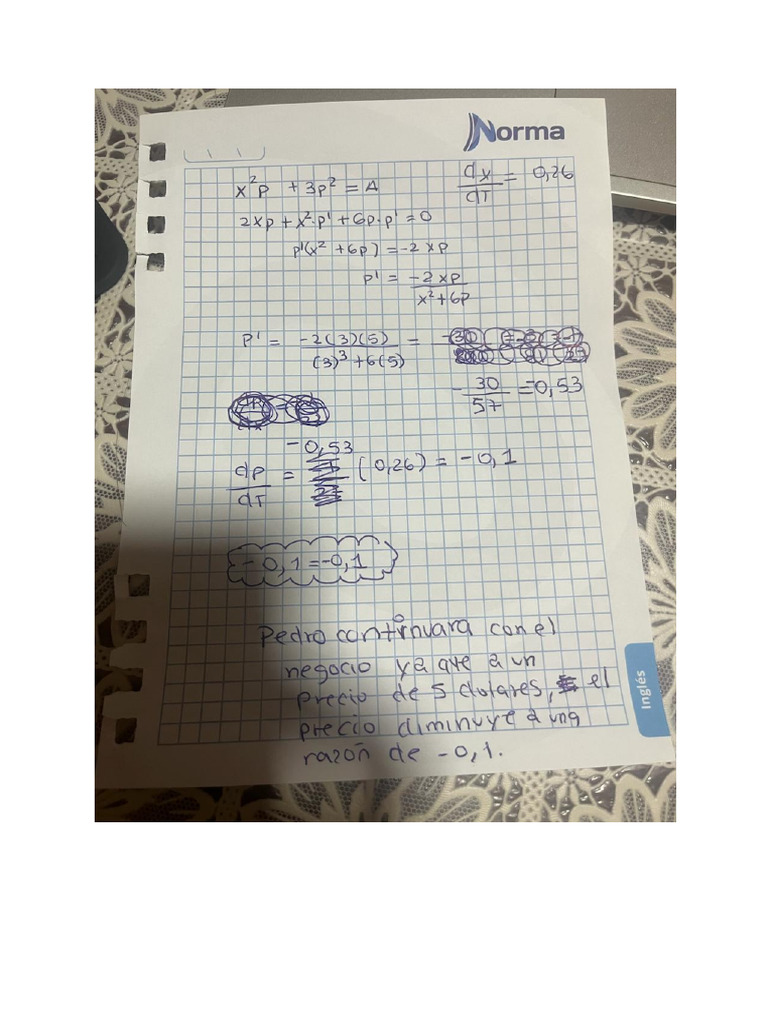 Norma
x²p + 3p² = A
dx/dT = 0,26
2xp + x²·p' + 6p·p' = 0
p'(x² + 6p) = -2xp
p' = -2xp / x²+6p
P' = -2(3)(5) / (3)³+6(5) =
-30/57 = 0,53
-0,53
dp/dT = (0,26) = -0,1
-0,1 = -0,1
Pedro continuara con el
negocio ya que a un
precio de 5 dolares, el
precio diminuye a una
razón de -0,1.
Inglés